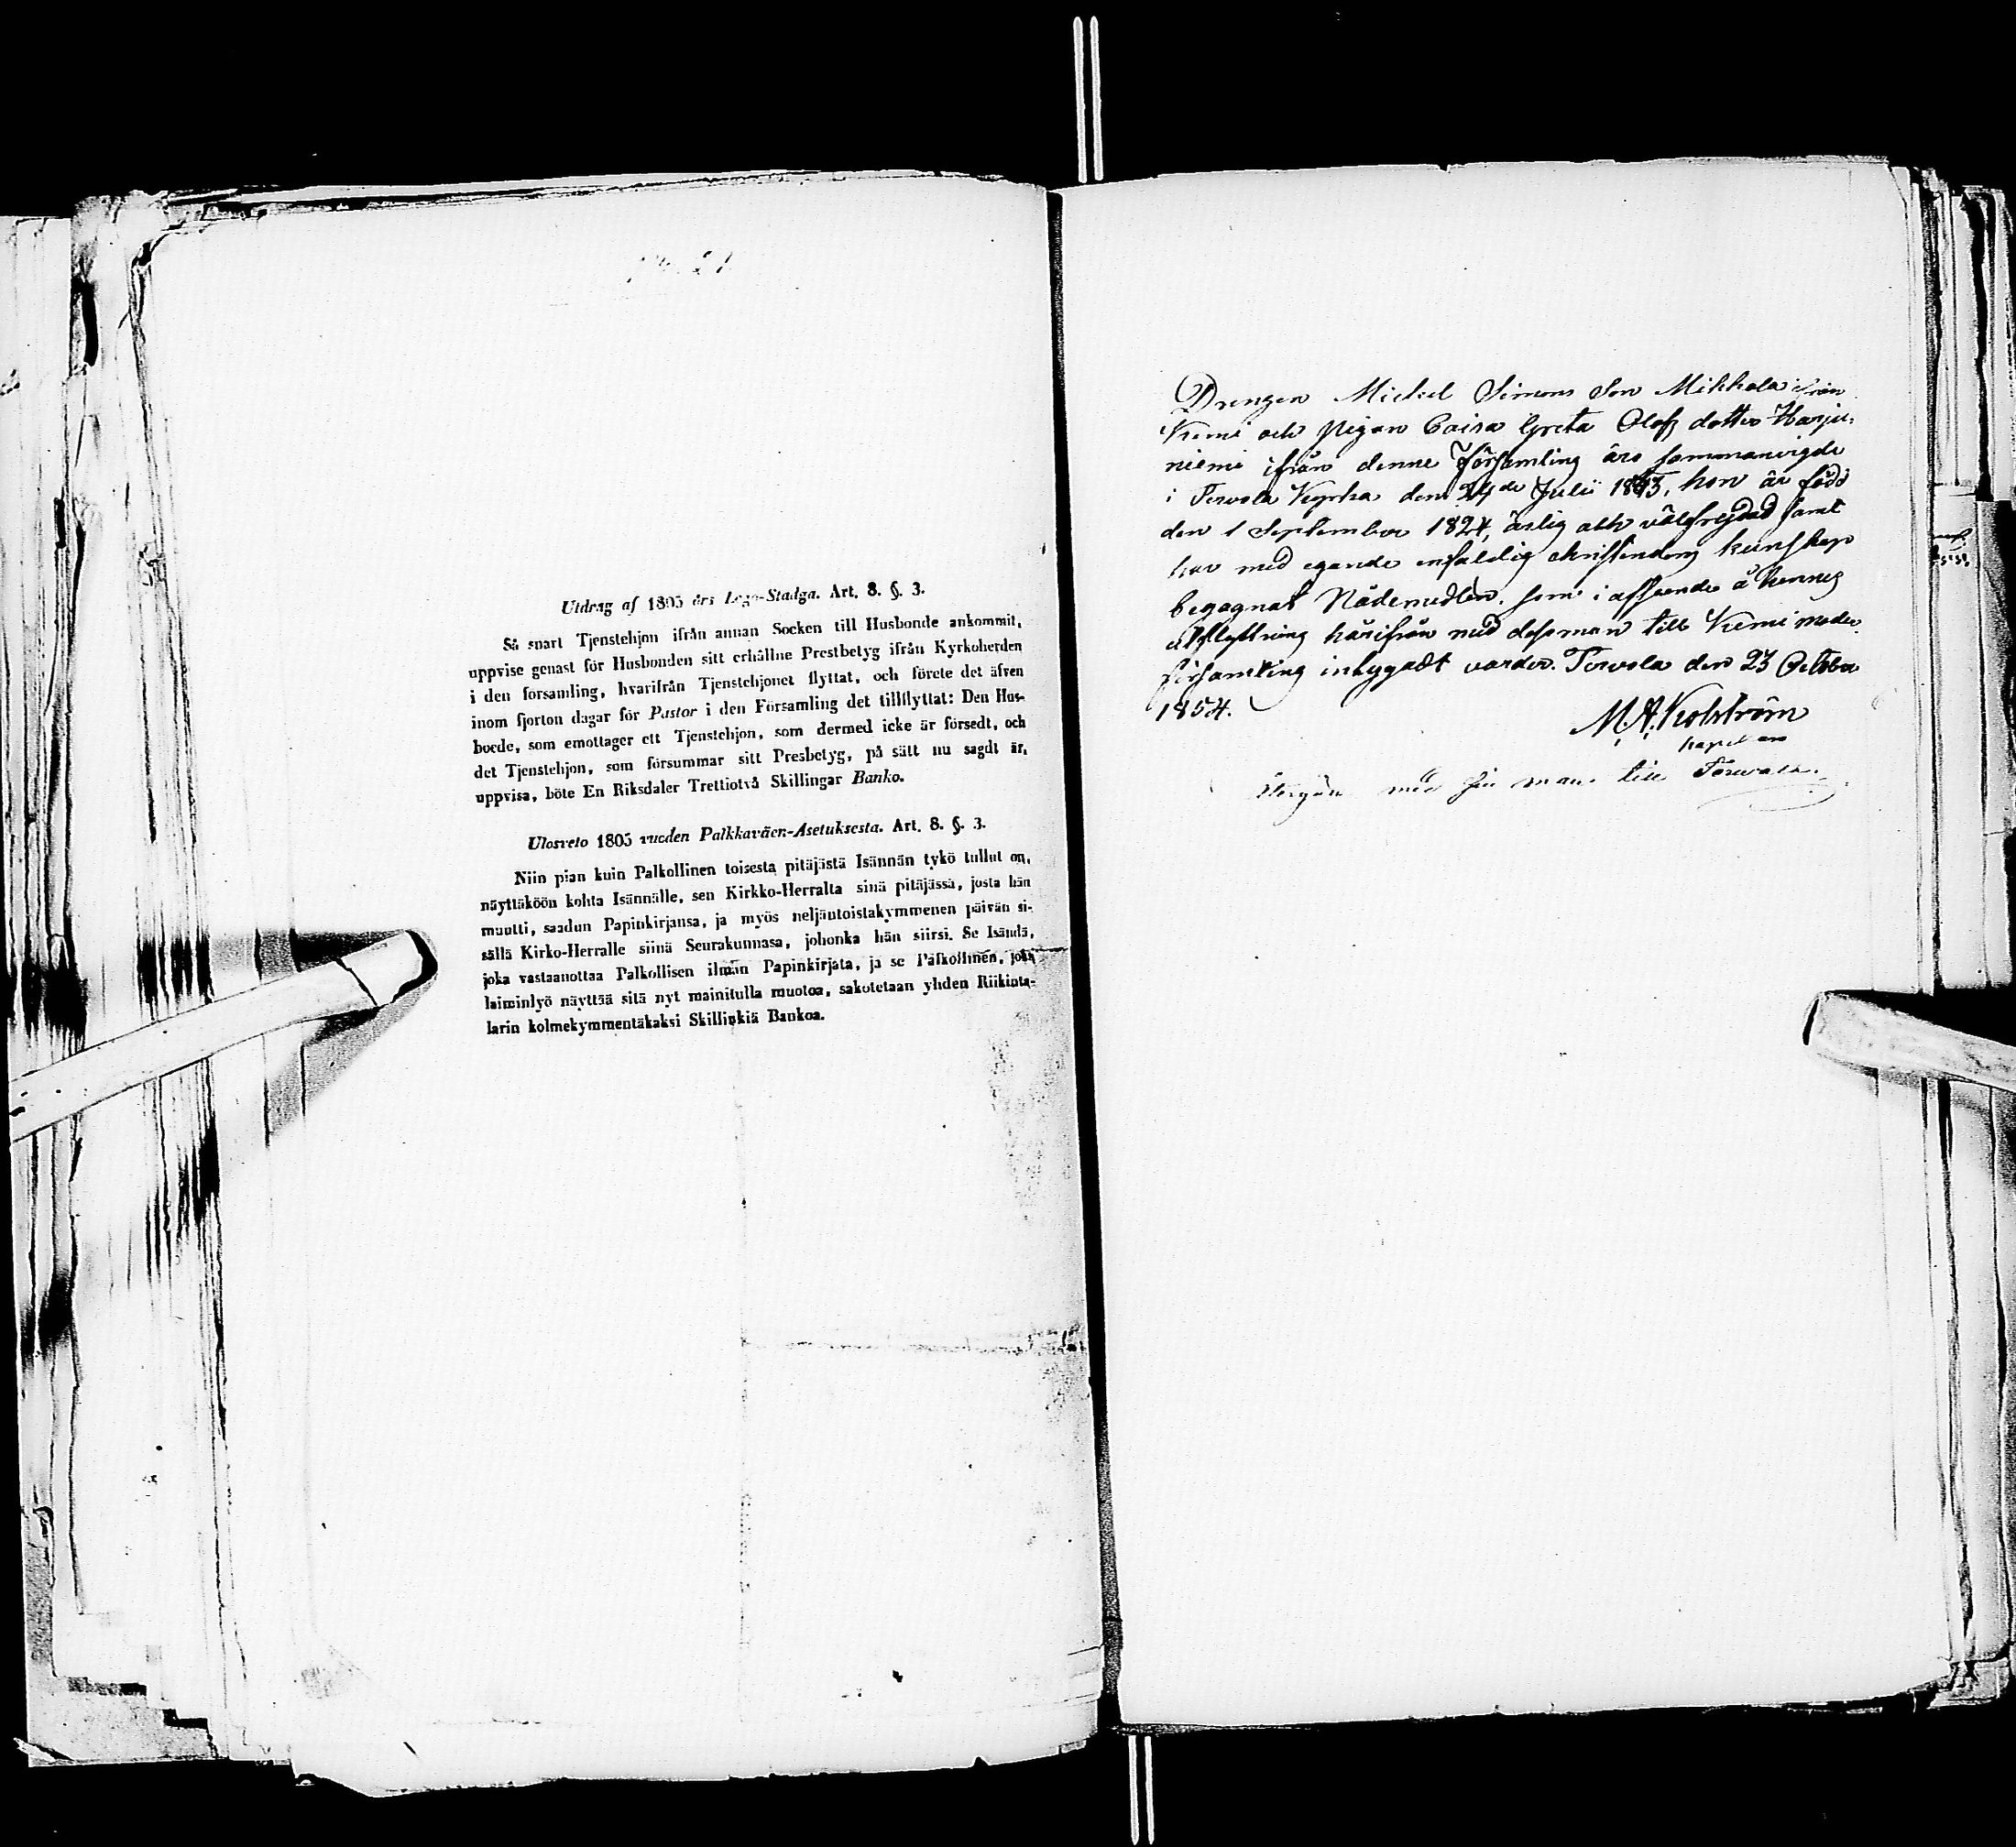 Utdrag af 1805 års Lego-Stadga. Art. 8. §. 3.
Så snart Tjenstehjon ifrån annan Socken till Husbonde ankommit,
uppvise genast för Husbonden sitt erhållne Prestbetyg ifrån Kyrkoherden
i den forsamling, hvarifrån Tjenstehjonet flyttat, och förete det äfven
inom fjorton dagar för Pastor i den Församling det tillflyttat: Den Hus-
bonde, som emottager ett Tjenstehjon, som dermed icke är försedt, och
det Tjenstehjon, som försummar sitt Presbetyg, på sätt nu sagdt är,
uppvisa, böte En Riksdaler Trettiotvå Skillingar Banko.
Ulosveto 1805 vuoden Palkkaväen-Asetuksesta. Art. 8. §. 3.
Niin pian kuin Palkollinen toisesta pitäjästä Isännän tykö tullut on,
näyttäköön kohta Isännälle, sen Kirkko-Herralta sinä pitäjässä, josta hän
muutti, saadun Papinkirjansa, ja myös neljäntoistakymmenen päivän si-
sällä Kirko-Herralle siinä Seurakunnasa, johonka hän siirsi. Se Isändä,
joka vastaanottaa Palkollisen ilman Papinkirjata, ja se Palkollinen, joka
laiminlyö näyttää sitä nyt mainitulla muotoa, sakotetaan yhden Riikinta-
larin kolmekymmentäkaksi Skillinkiä Bankoa.
Drengen Michel Simons Son Mikkola ifrån
Kemi och Pigan Caisa Greta Olofs dotter Harju-
niemi ifrån denne Församling äro sammanvigde
i Tervola Kyrka den 24de Julii 1853, hon är född
den 1 September 1824, ärlig och välfrejdad samt
har med egande enfaldig christendoms kunskap
begagnat Nådemedlen, som i afseende å hennes
utflyttning härifrån med dess man till Kemi moder
församling intygadt varder. Tervola den 23 October
1854.
M. A. Kolström
kapellan
Återgår med sin man till Torvola.